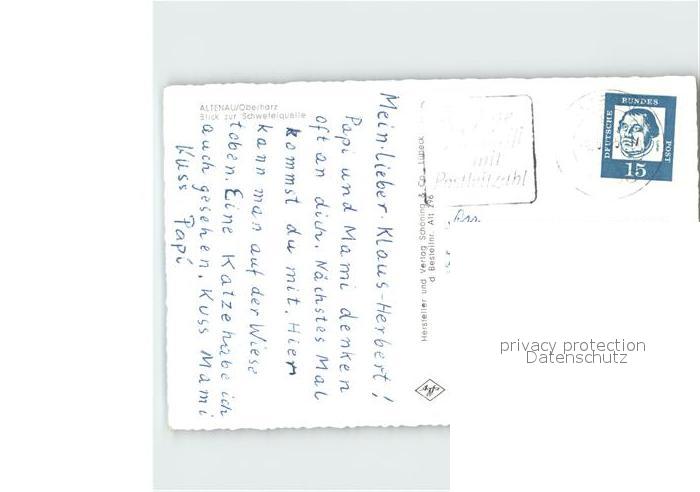 ALTENAU/Oberharz
Blick zur Schwefelquelle
Mein lieber Klaus-Herbert!
Papi und Mami denken
oft an dich. Nächstes Mal
kommst du mit. Hier
kann man auf der Wiese
toben. Eine Katze habe ich
auch gesehen. Kuss Mami
Kuss Papi
Hersteller und Verlag Schöning & Co., Lübeck
Bestellnr. Alt 196
mit
Postleitzahl
DEUTSCHE
BUNDES
POST
15
privacy protection
Datenschutz